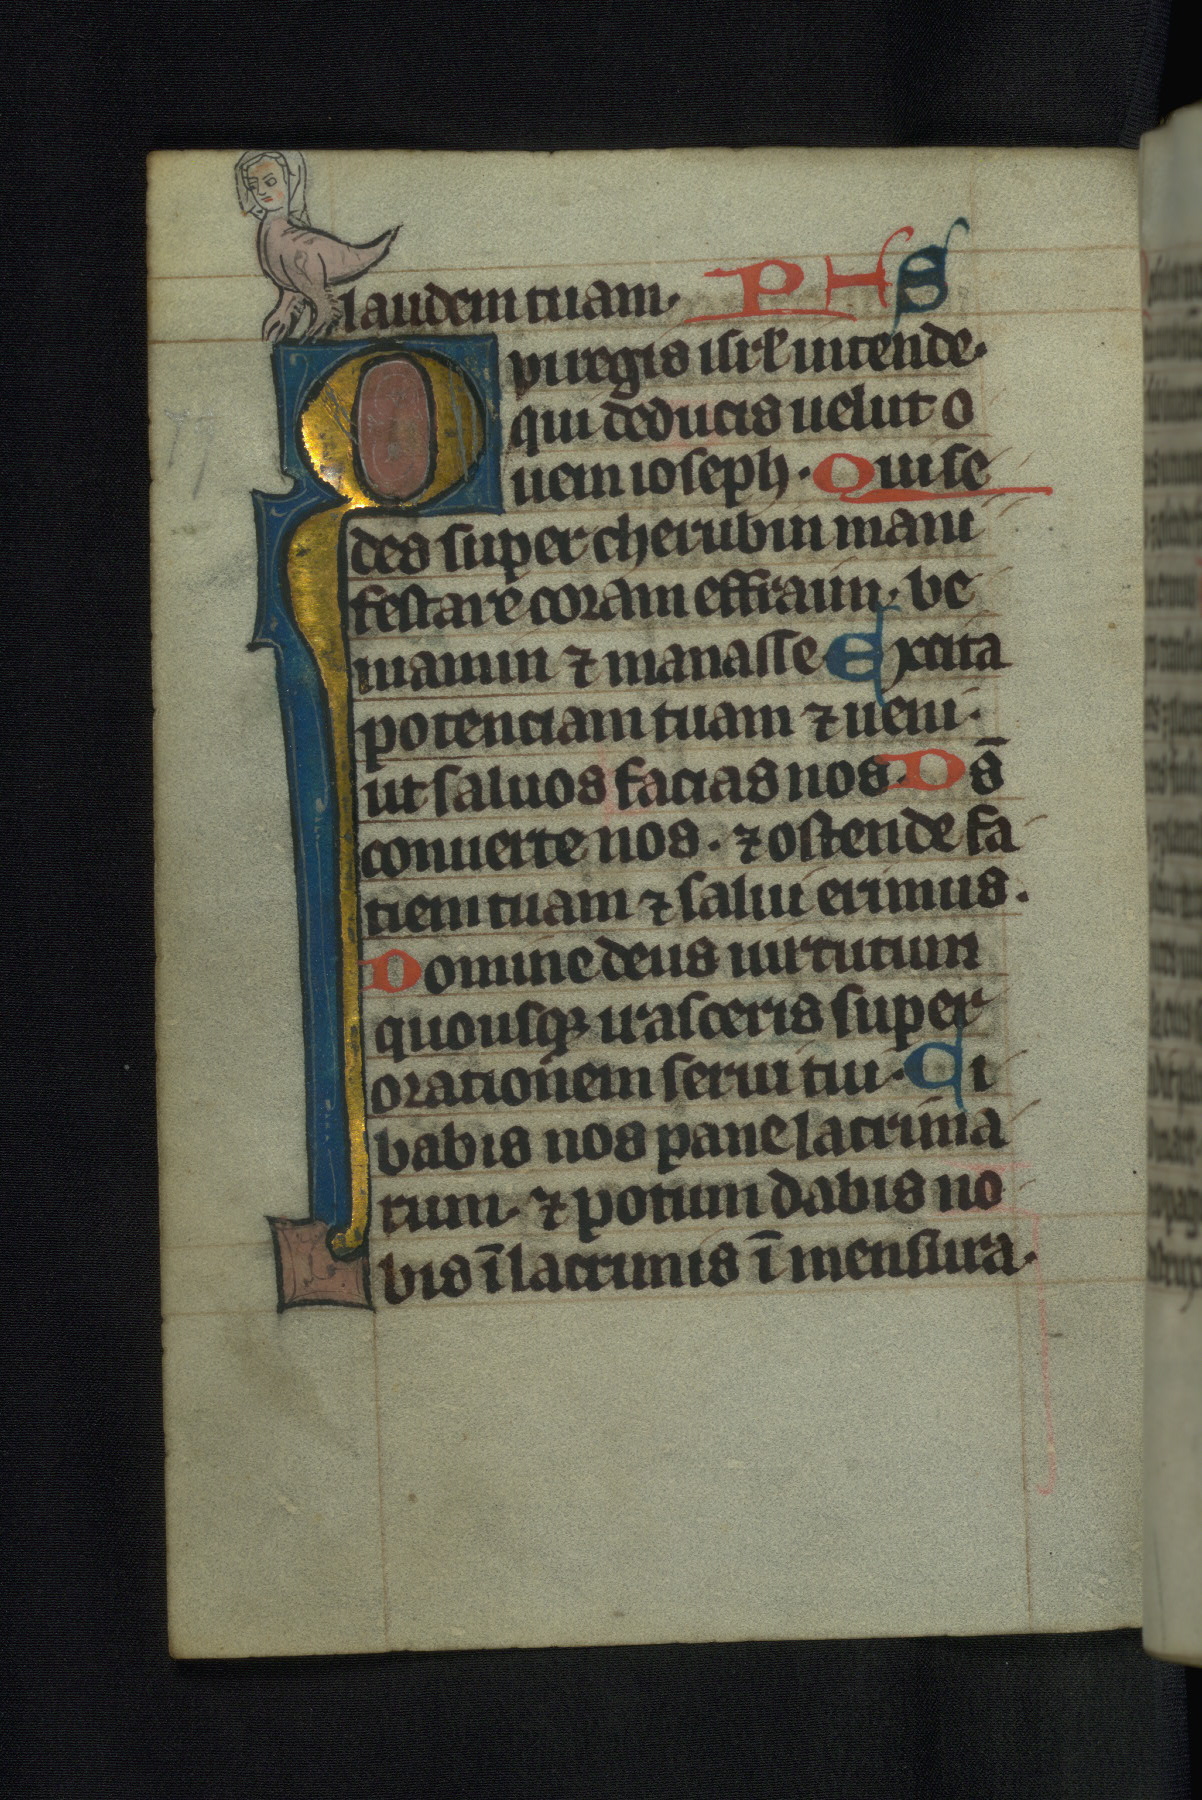 laudem tuam. PHS
Qui regis isrl' intende.
qui deducis uelut o
uem ioseph. Qui se
des super cherubin mani
festare coram effraim. be
niamin ⁊ manasse Excita
potenciam tuam ⁊ ueni.
ut saluos facias nos. Ds̄
conuerte nos. ⁊ ostende fa
ciem tuam ⁊ salui erimus.
Domine deus uirtutum
quousqꝫ irasceris super
orationem serui tui. Ci
babis nos pane lacrima
rum. ⁊ potum dabis no
bis ī lacrimis ī mensura.